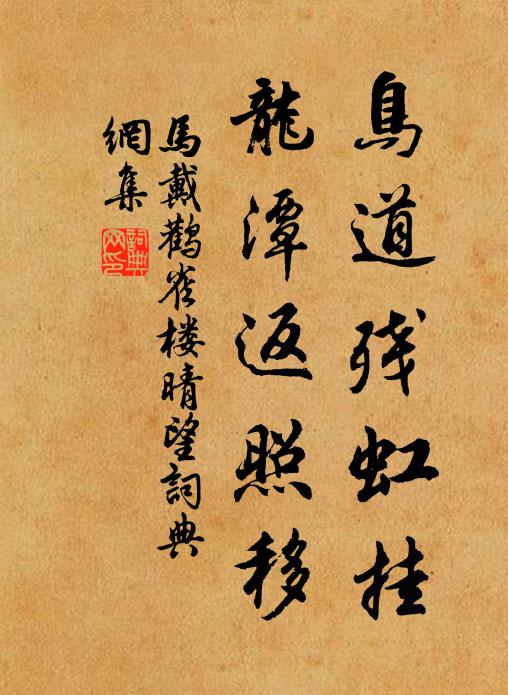 鳥道残虹挂
龍潭返照移
馬戴鸛雀楼晴望詞典
網集
詞典网印